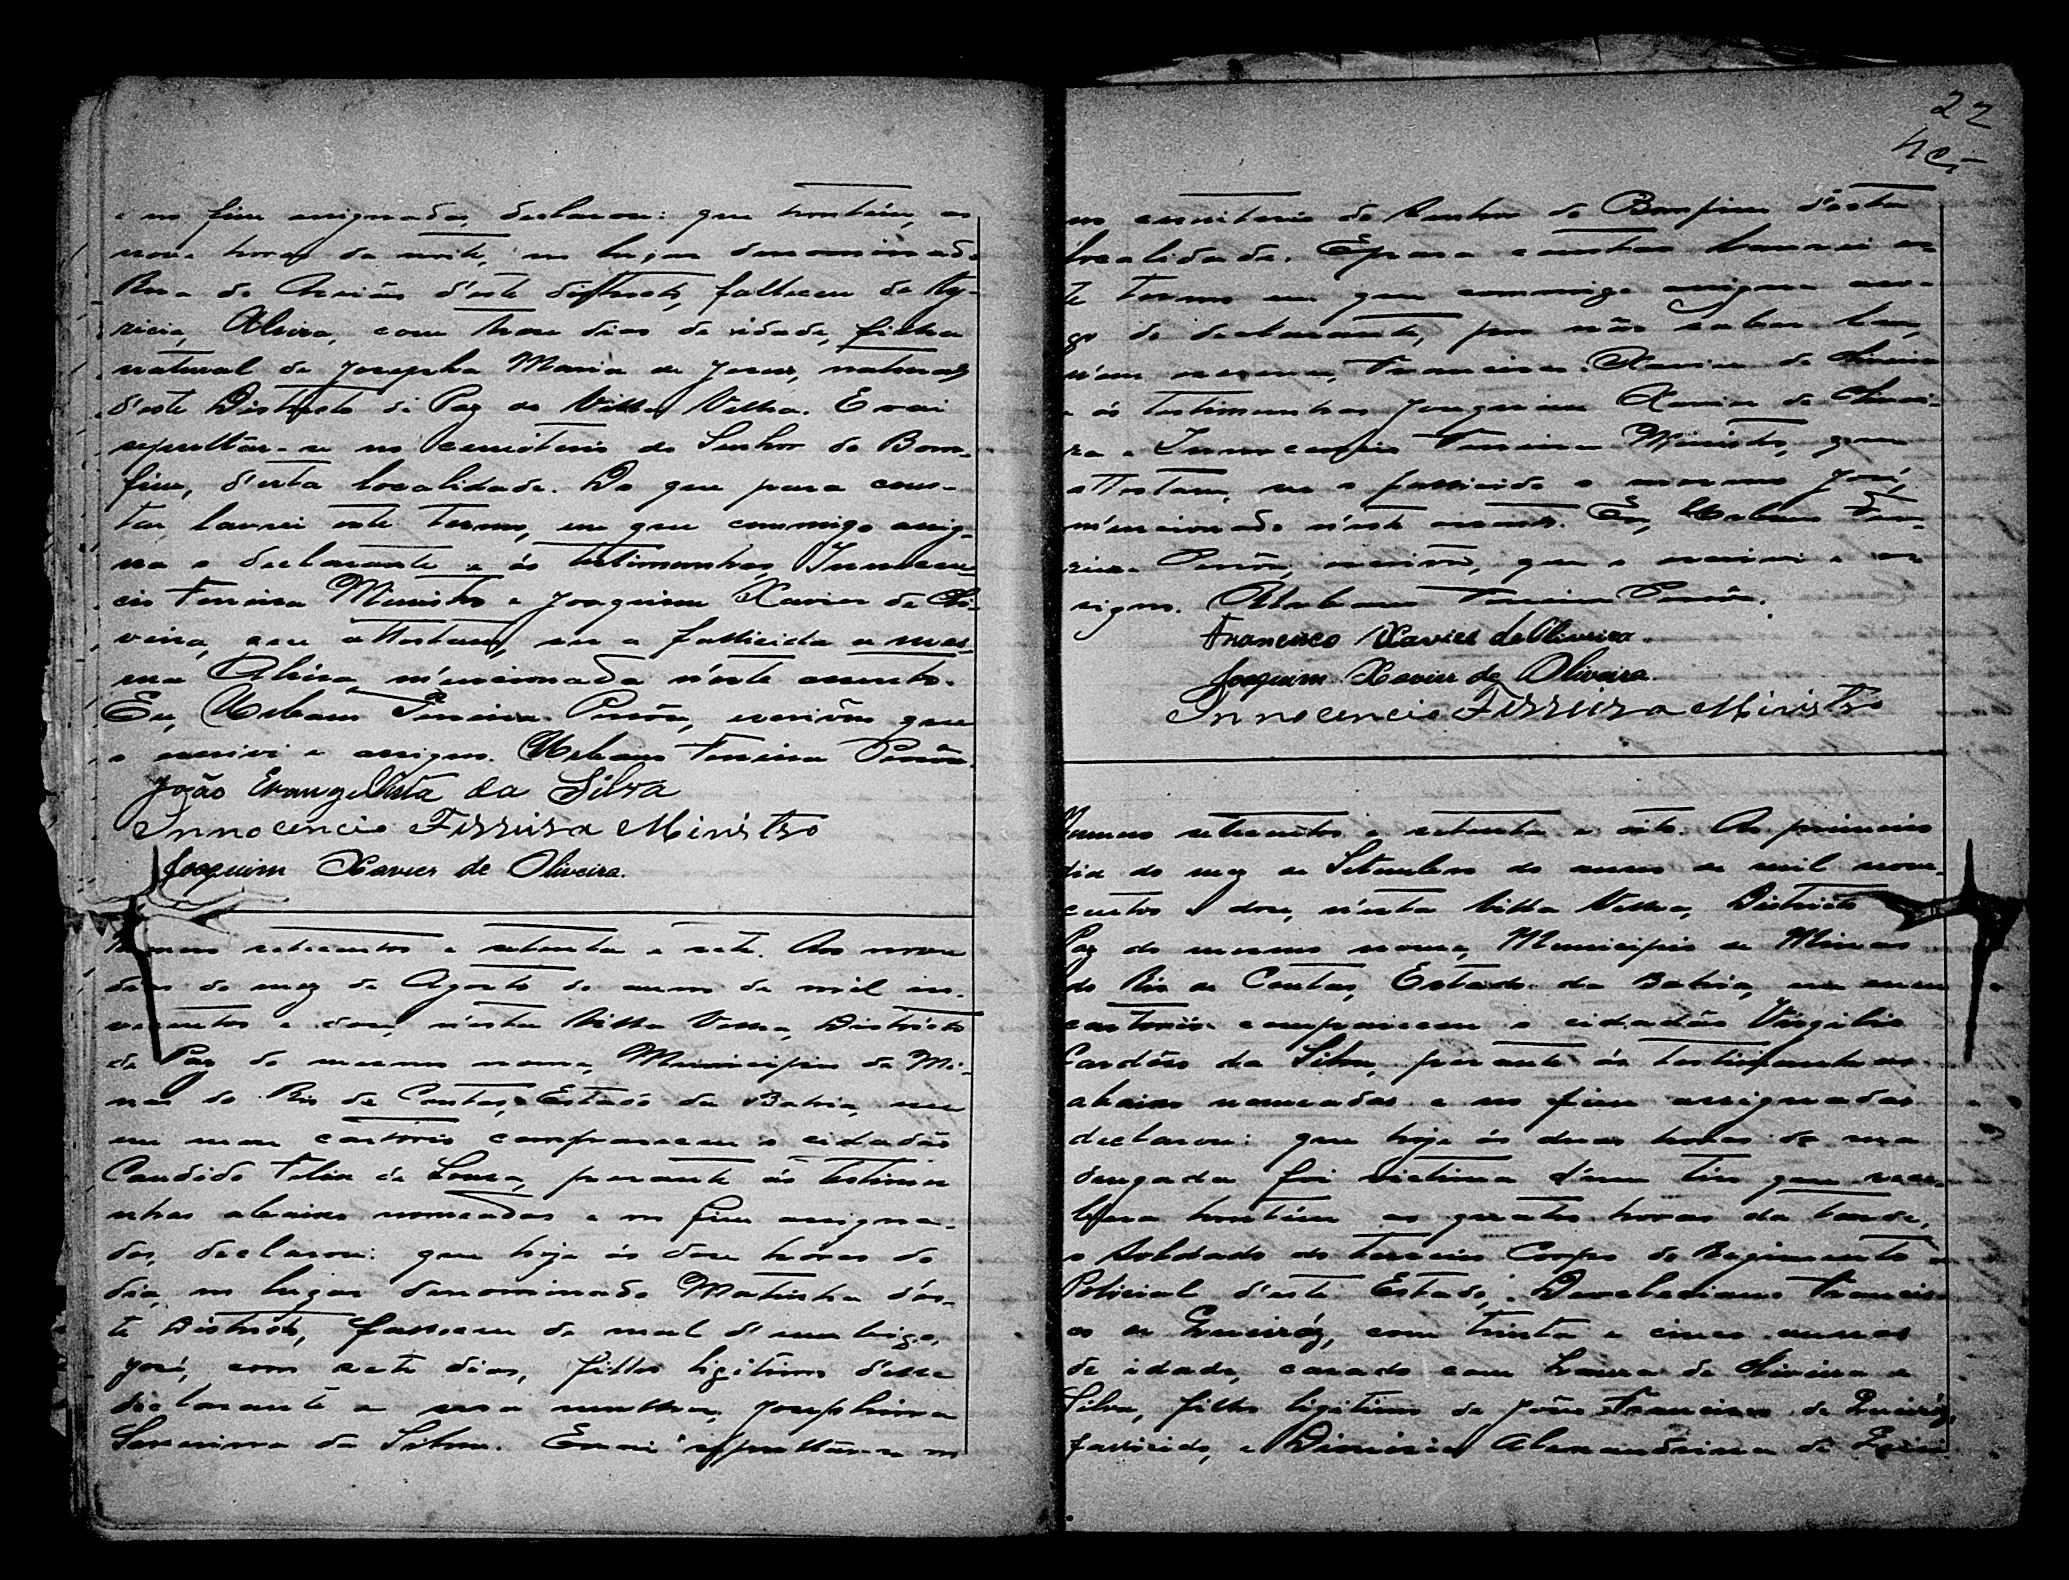 e no fim assignadas, declarou: que hontém, as
nove horas da noite, no lugar denominado
d'este districto, falleceu de
Alsira, com dias de idade, filha
natural de Josepha Maria de Jesus, natural
d'este Districto de Paz de Villa Velha. E vai
sepultar-se no cemiterio do Senhor do Bom-
fim, d'esta localidade. Do que para cons-
tar lavrei este termo, em que commigo assig-
na o declarante e ás testimunhas Innocen-
cio Ferreira Ministro e Joaquim Xavier de Oli-
veira, que attestam, ser a fallicida a mes-
ma Alsira, mencionada n'este assento.
Eu, Urbano Ferreira, escrivão que
o escrivi e assigno. Urbano Ferreira
João Evangelista da Silva
Innocencio Ferreira Ministro
Joaquim Xavier de Oliveira.
Numero setecentos e setenta e sete. Aos nove
dias do mez de Agosto do anno de mil no-
vecentos e doze, n'esta Villa Velha, Districto
de Paz do mesmo nome, Municipio de Mi-
nas do Rio de Contas, Estado da Bahia, em
em meu cartorio compareceu o cidadão
Candido Felix de Souza, perante ás testimu-
nhas abaixo nomeadas e no fim assigna-
das, declarou: que hoje ás doze hóras do
dia, no lugar denominado Matinha d'es-
te Districto, falleceu de mal d'umbigo,
José, com sete dias, filho ligitimo d'elle
declarante e sua mulher, Josephina
Severina da Silva. E vai sepultar-se no
22
no cemiterio do Senhor do Bomfim d'esta
localidade. E para constar lavrei es-
te termo em que commigo assigna a ro-
go do declarante, por não saber ler,
nem escrever, Francisco Xavier de Oliveira
e ás testimunhas Joaquim Xavier de Olivei-
ra e Innocencio Ferreira Ministro, que
attestam, ser o fallicido o mesmo José,
mencionado n'este assento. Eu, Urbano Fer-
reira, escrivão, que o escrivi e as-
signo. Urbano Ferreira
Francisco Xavier de Oliveira.
Joaquim Xavier de Oliveira.
Innocencio Ferreira Ministro
Numero setecentos e setenta e oito. Ao primeiro
dia do mez de Setembro do anno de mil nove-
centos e doze, n'esta Villa Velha, Districto
Paz do mesmo nome, Municipio de Minas
do Rio de Contas, Estado da Bahia, em meu
cartorio compareceu o cidadão Virgilio
Cardôso da Silva, perante ás testimunhas
abaixo nomeadas e no fim assignadas
declarou: que hoje ás duas horas da ma-
drugada foi victima d'um tiro que rece-
bera hontém as quatro horas da tarde,
o Soldado do terceiro Corpo do Regimento
Policial d'este Estado, Francis-
co de Queiróz, com trinta e cinco annos
de idade, casado com Laura de Oliveira e
Silva, filho ligitimo de João Francisco de Queiróz,
fallicido, e Dionisia Alexandrina de Quei-